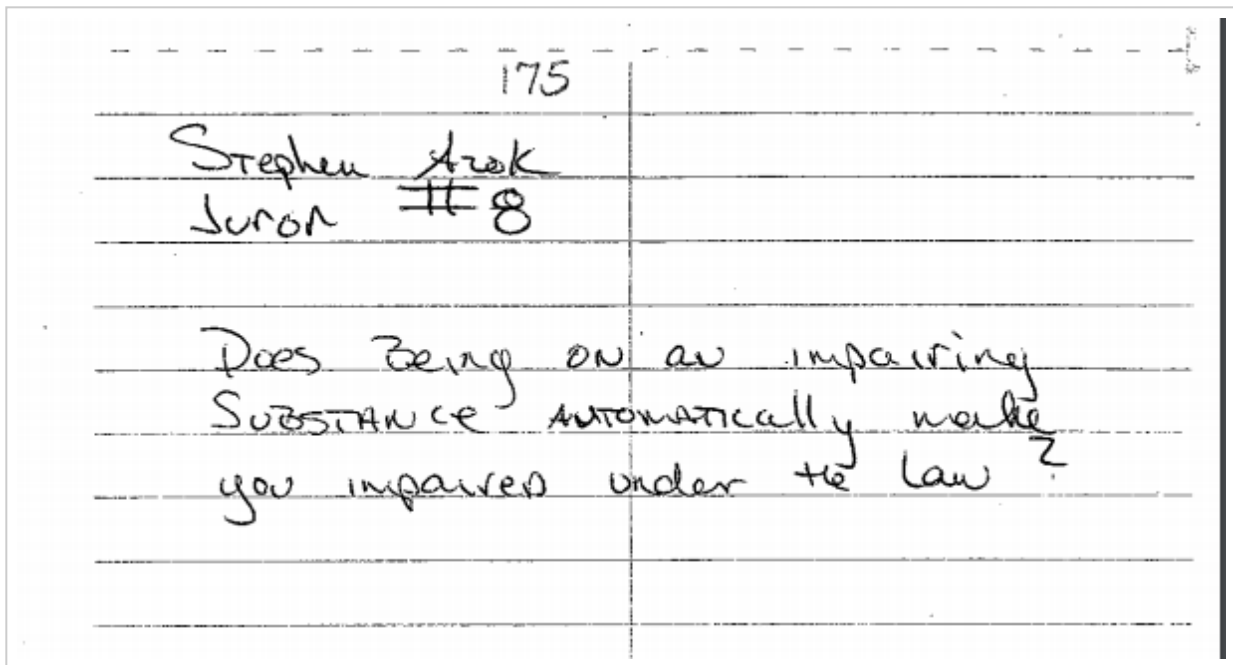 175
Stephen Azok
Juror #8
Does Being on an impairing
SUBSTANCE AUTOMATICally make
you impaired under the Law?